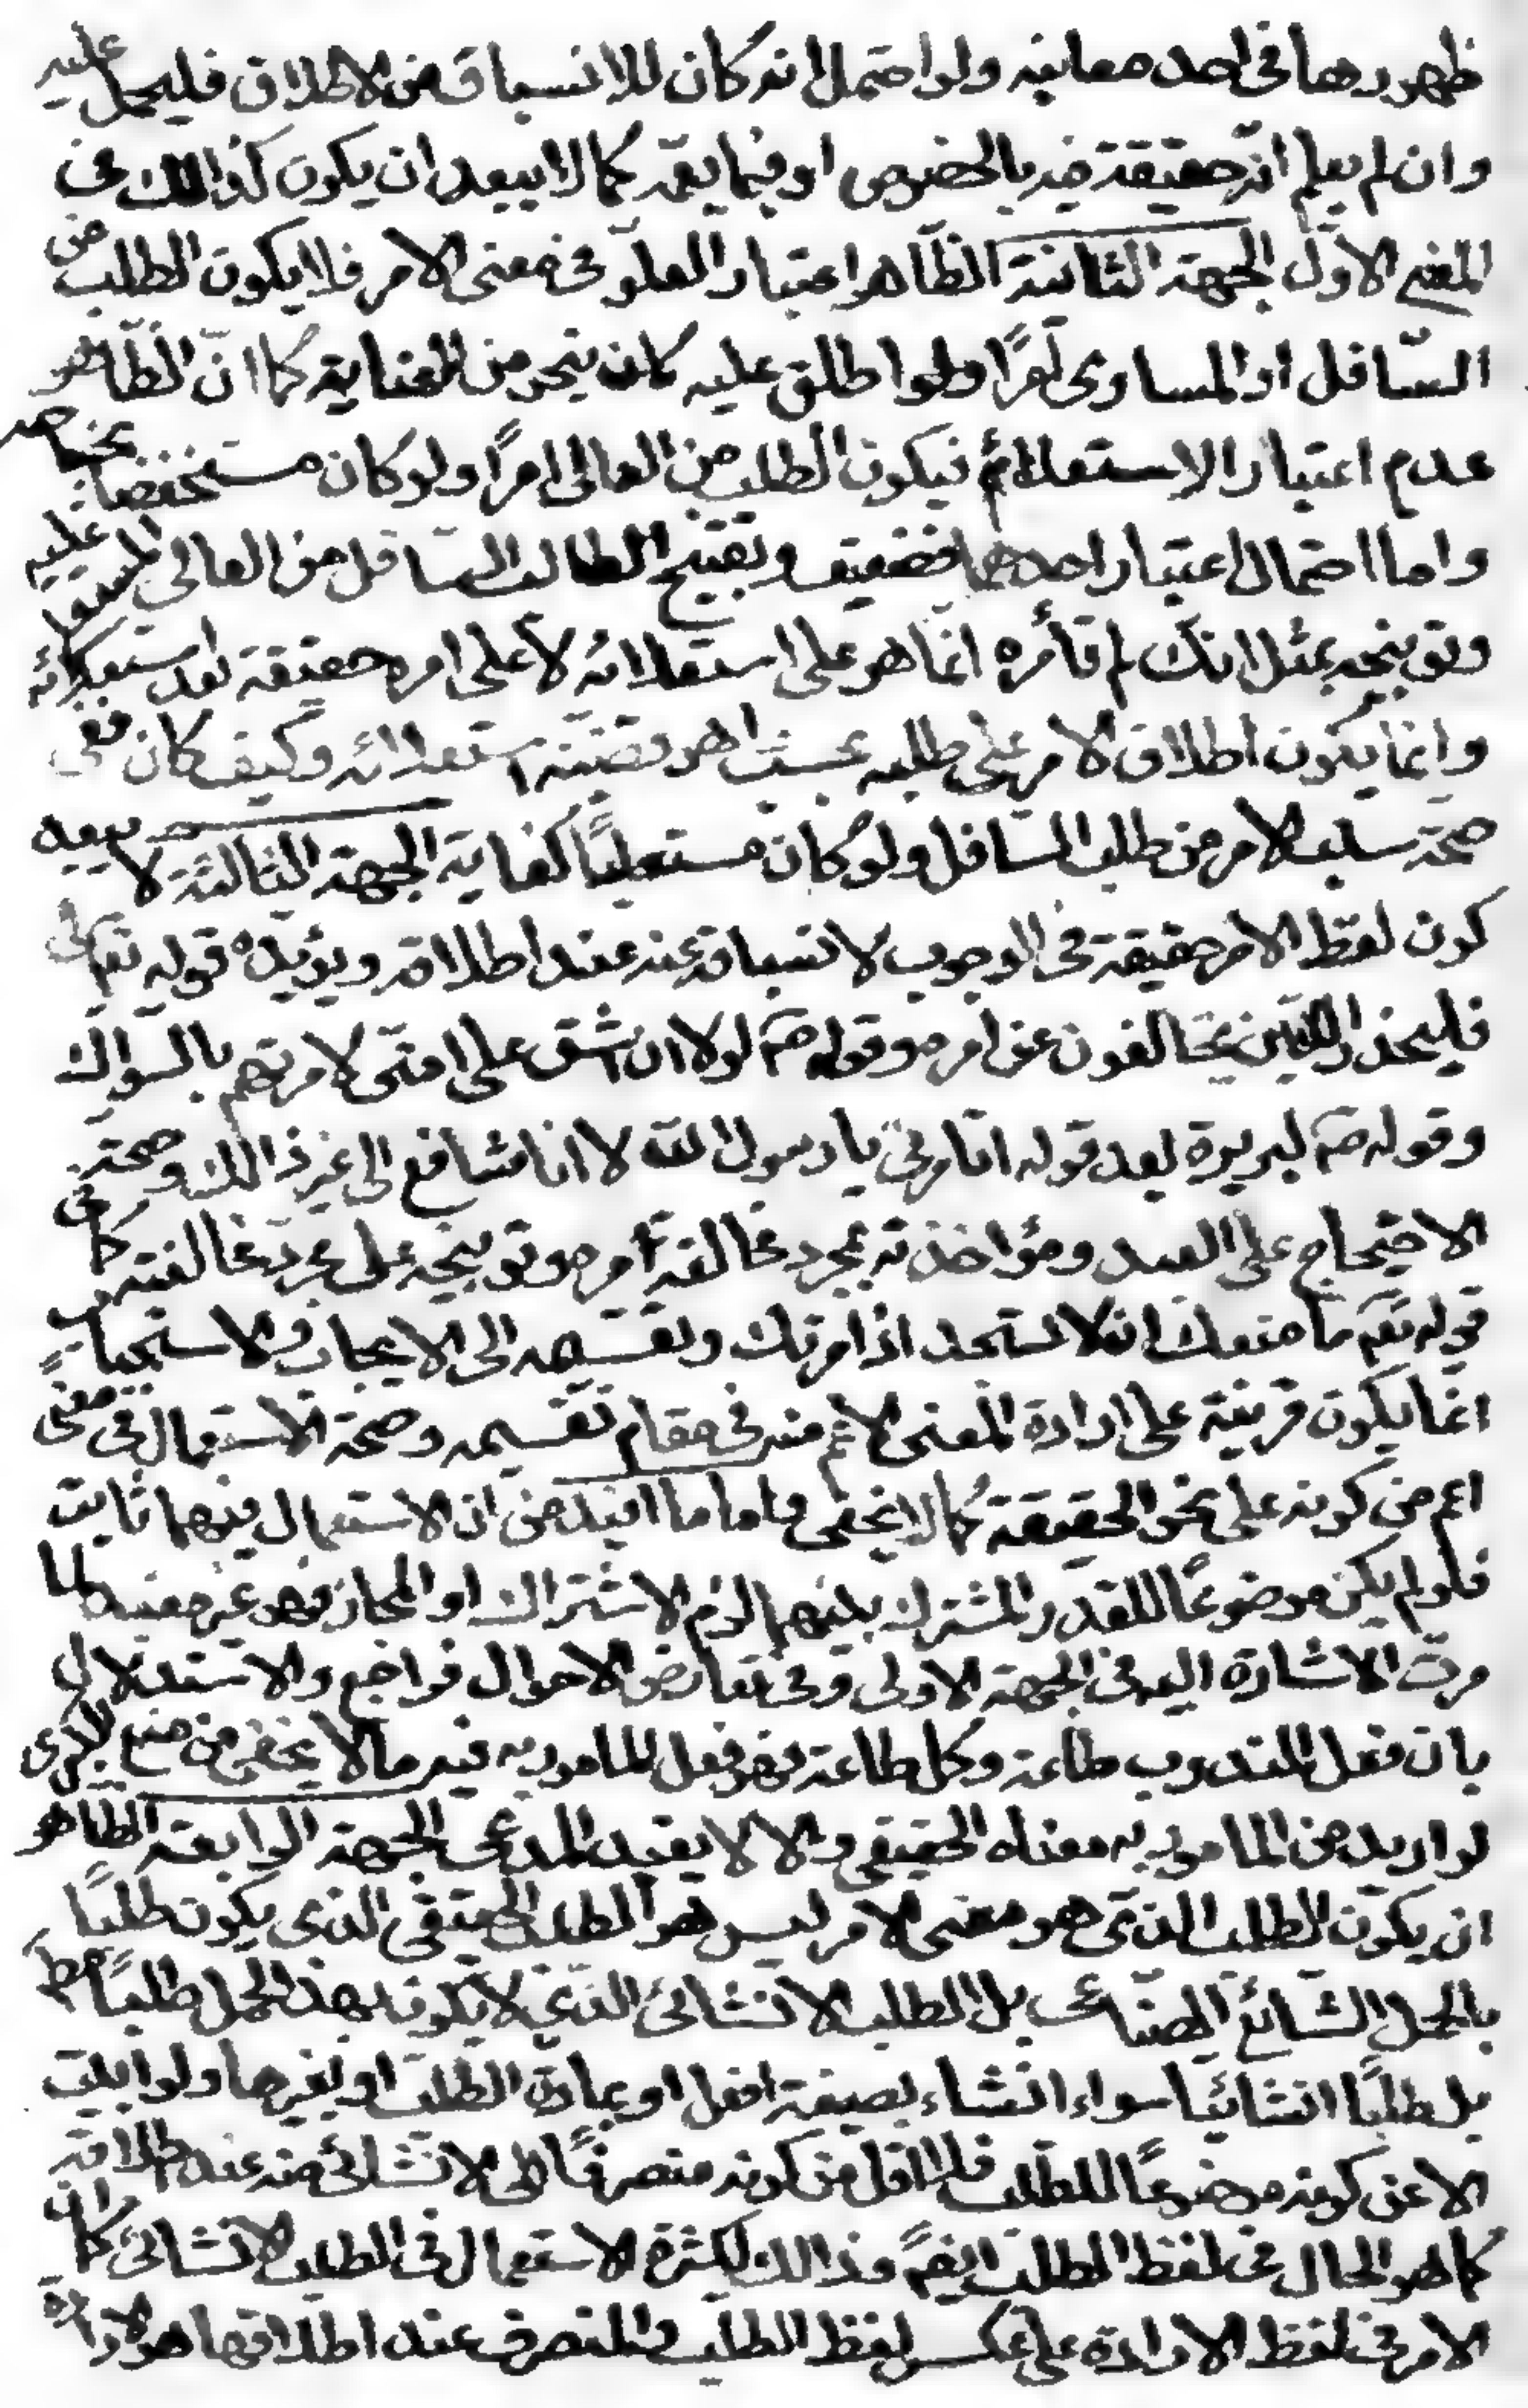 ظهوره في احد معانيه ولو احتمل انه كان للانسباق من الاطلاق فليحمل عليه
وان لم يعلم انه حقيقة فيه بالخصوص او فيما يعمّه كما لا يبعد ان يكون كذالك فى
المعنى الاوّل الجهة الثانية الظّاهر اعتبار العلوّ فى معنى الامر فلا يكون الطلب من
السّافل او المساوى امرًا ولو اطلق عليه كان بنحو من العناية كما انّ الظّاهر
عدم اعتبار الاستعلاء فيكون الطلب من العالى امرًا ولو كان مستخفضا بجناحه
واما احتمال اعتبار احدهما فضعيف وتقبيح الطالب السّافل من العالى المستعلى عليه
وتوبيخه بمثل انك لم تأمره انّما هو على استعلائه لا على امره حقيقة بعد استعلائه
وانما يكون اطلاق الامر على طلبه بحسب ما هو قضيّة استعلائه وكيف كان ففى
صحّة سلب الامر من طلب السّافل ولو كان مستعليًا كفاية الجهة الثالثة لا يبعد
كون لفظ الامر حقيقة فى الوجوب لانسباقه عنه عند اطلاقه ويؤيّده قوله تعالى
فليحذر الّذين يخالفون عن امره وقوله صم لولا ان اشق على امتى لامرتهم بالسّواك
وقوله صم لبريرة بعد قوله اتأمرنى يا رسول الله لا انا شافع الى غير ذالك وصحّة
الاحتجاج على العبد ومؤاخذته بمجرد مخالفة امره وتوبيخه على مجرد مخالفته كما فى
قوله تعم ما منعك ان لا تسجد اذ امرتك وتقسيمه الى الايجاب والاستحباب
انما يكون قرينة على ارادة المعنى الاعمّ منه فى مقام تقسيمه وصحة الاستعمال فى معنًى
اعم من كونه على نحو الحقيقة كما لا يخفى واما ما افيد من ان الاستعمال فيهما ثابت
فلو لم يكن موضوعًا للقدر المشترك بينهما لزم الاشتراك او المجاز فهو غير مفيد لما
مرت الاشارة اليه فى الجهة الاولى وفى تعارض الاحوال فراجع والاستدلال
بان فعل المندوب طاعة وكل طاعة فهو فعل المامور به فيه ما لا يخفى من منع الكبرى
لو اريد من المامور به معناه الحقيقى والا لا يفيد المدعى الجهة الرابعة الظّاهر
ان يكون الطلب الذى هو معنى الامر ليس هو الطلب الحقيقى الذى يكون طلبًا
بالحمل الشّائع الصّناعى بل الطلب الانشائى الذى لا يكون بهذا الحمل طلبًا مطم
بل طلبًا انشائيّا سواء انشاء بصيغة افعل او بمادة الطلب او بغيرها ولو ابيت
الا عن كونه موضوعًا للطلب فلا اقل من كونه منصرفًا الى الانشائى منه عند اطلاقه
كما هو الحال فى لفظ الطلب ايضًا وذالك لكثرة الاستعمال فى الطلب الانشائى كما ان
الامر فى لفظ الارادة على عكس لفظ الطلب والمنصرف عند اطلاقها هو الارادة